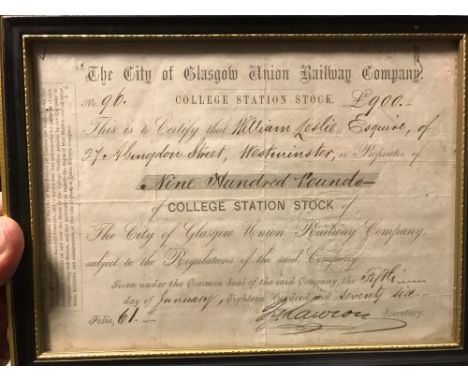 The City of Glasgow Union Railway Company.
No. 96. COLLEGE STATION STOCK. £900.-
This is to Certify that William Leslie, Esquire, of
27 Abingdon Street, Westminster, is Proprietor of
Nine Hundred Pounds
of COLLEGE STATION STOCK of
The City of Glasgow Union Railway Company,
subject to the Regulations of the said Company.
Given under the Common Seal of the said Company, the Fifth
day of January, Eighteen Hundred and seventy six.
Folio, 61.- Secretary.